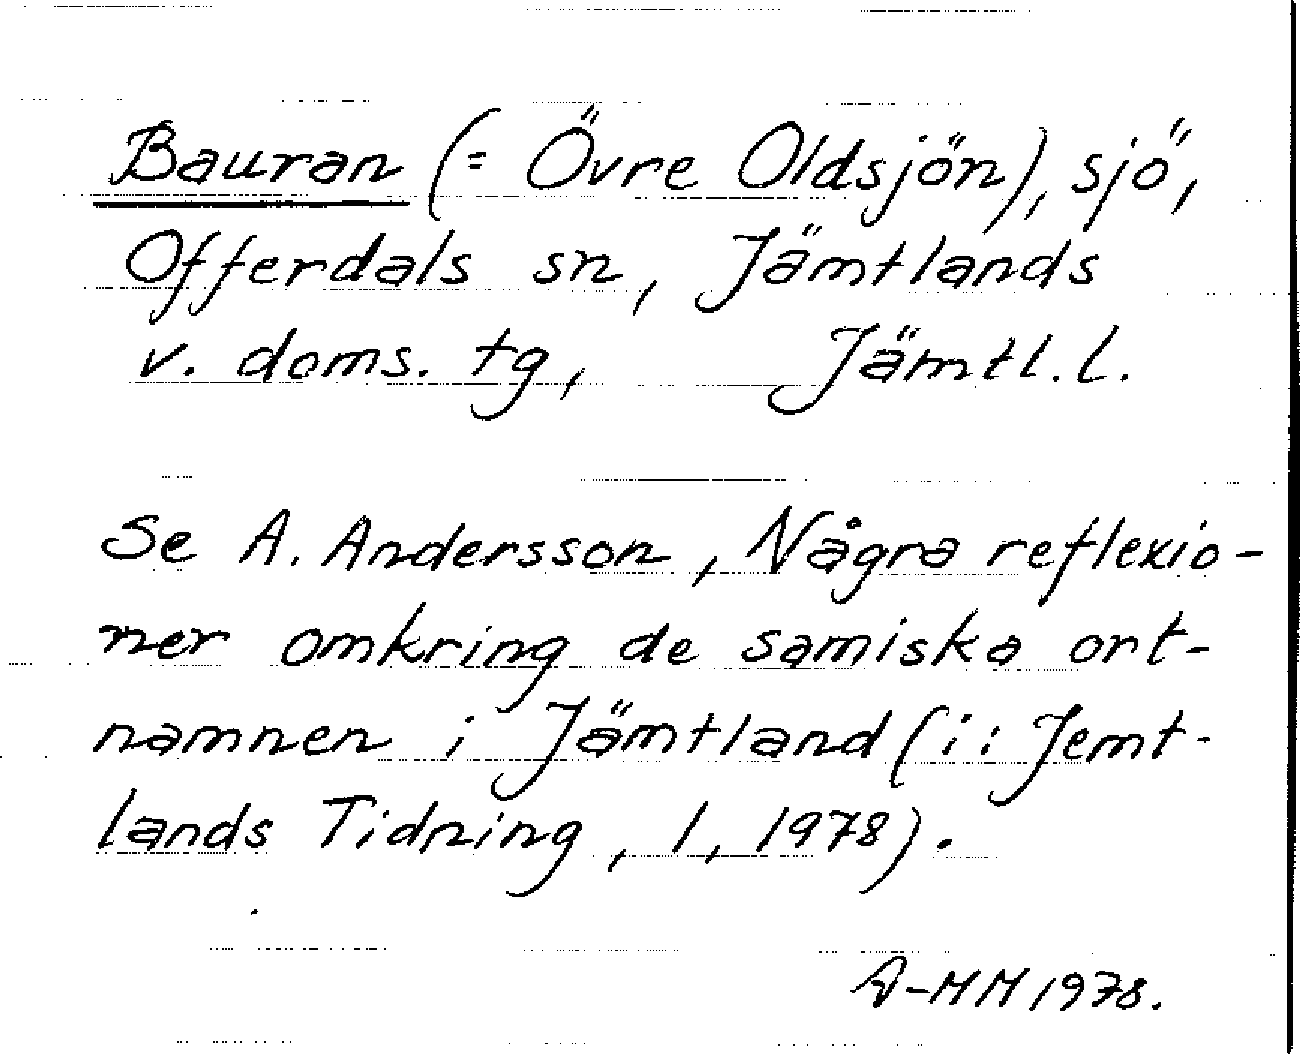 Bauran (= Övre Oldsjön), sjö,
Offerdals sn, Jämtlands
v. doms. tg, Jämtl. l.
Se A. Andersson, Några reflexio-
ner omkring de samiska ort-
namnen i Jämtland (i: Jemt-
lands Tidning, 1, 1978).
A-MM 1978.